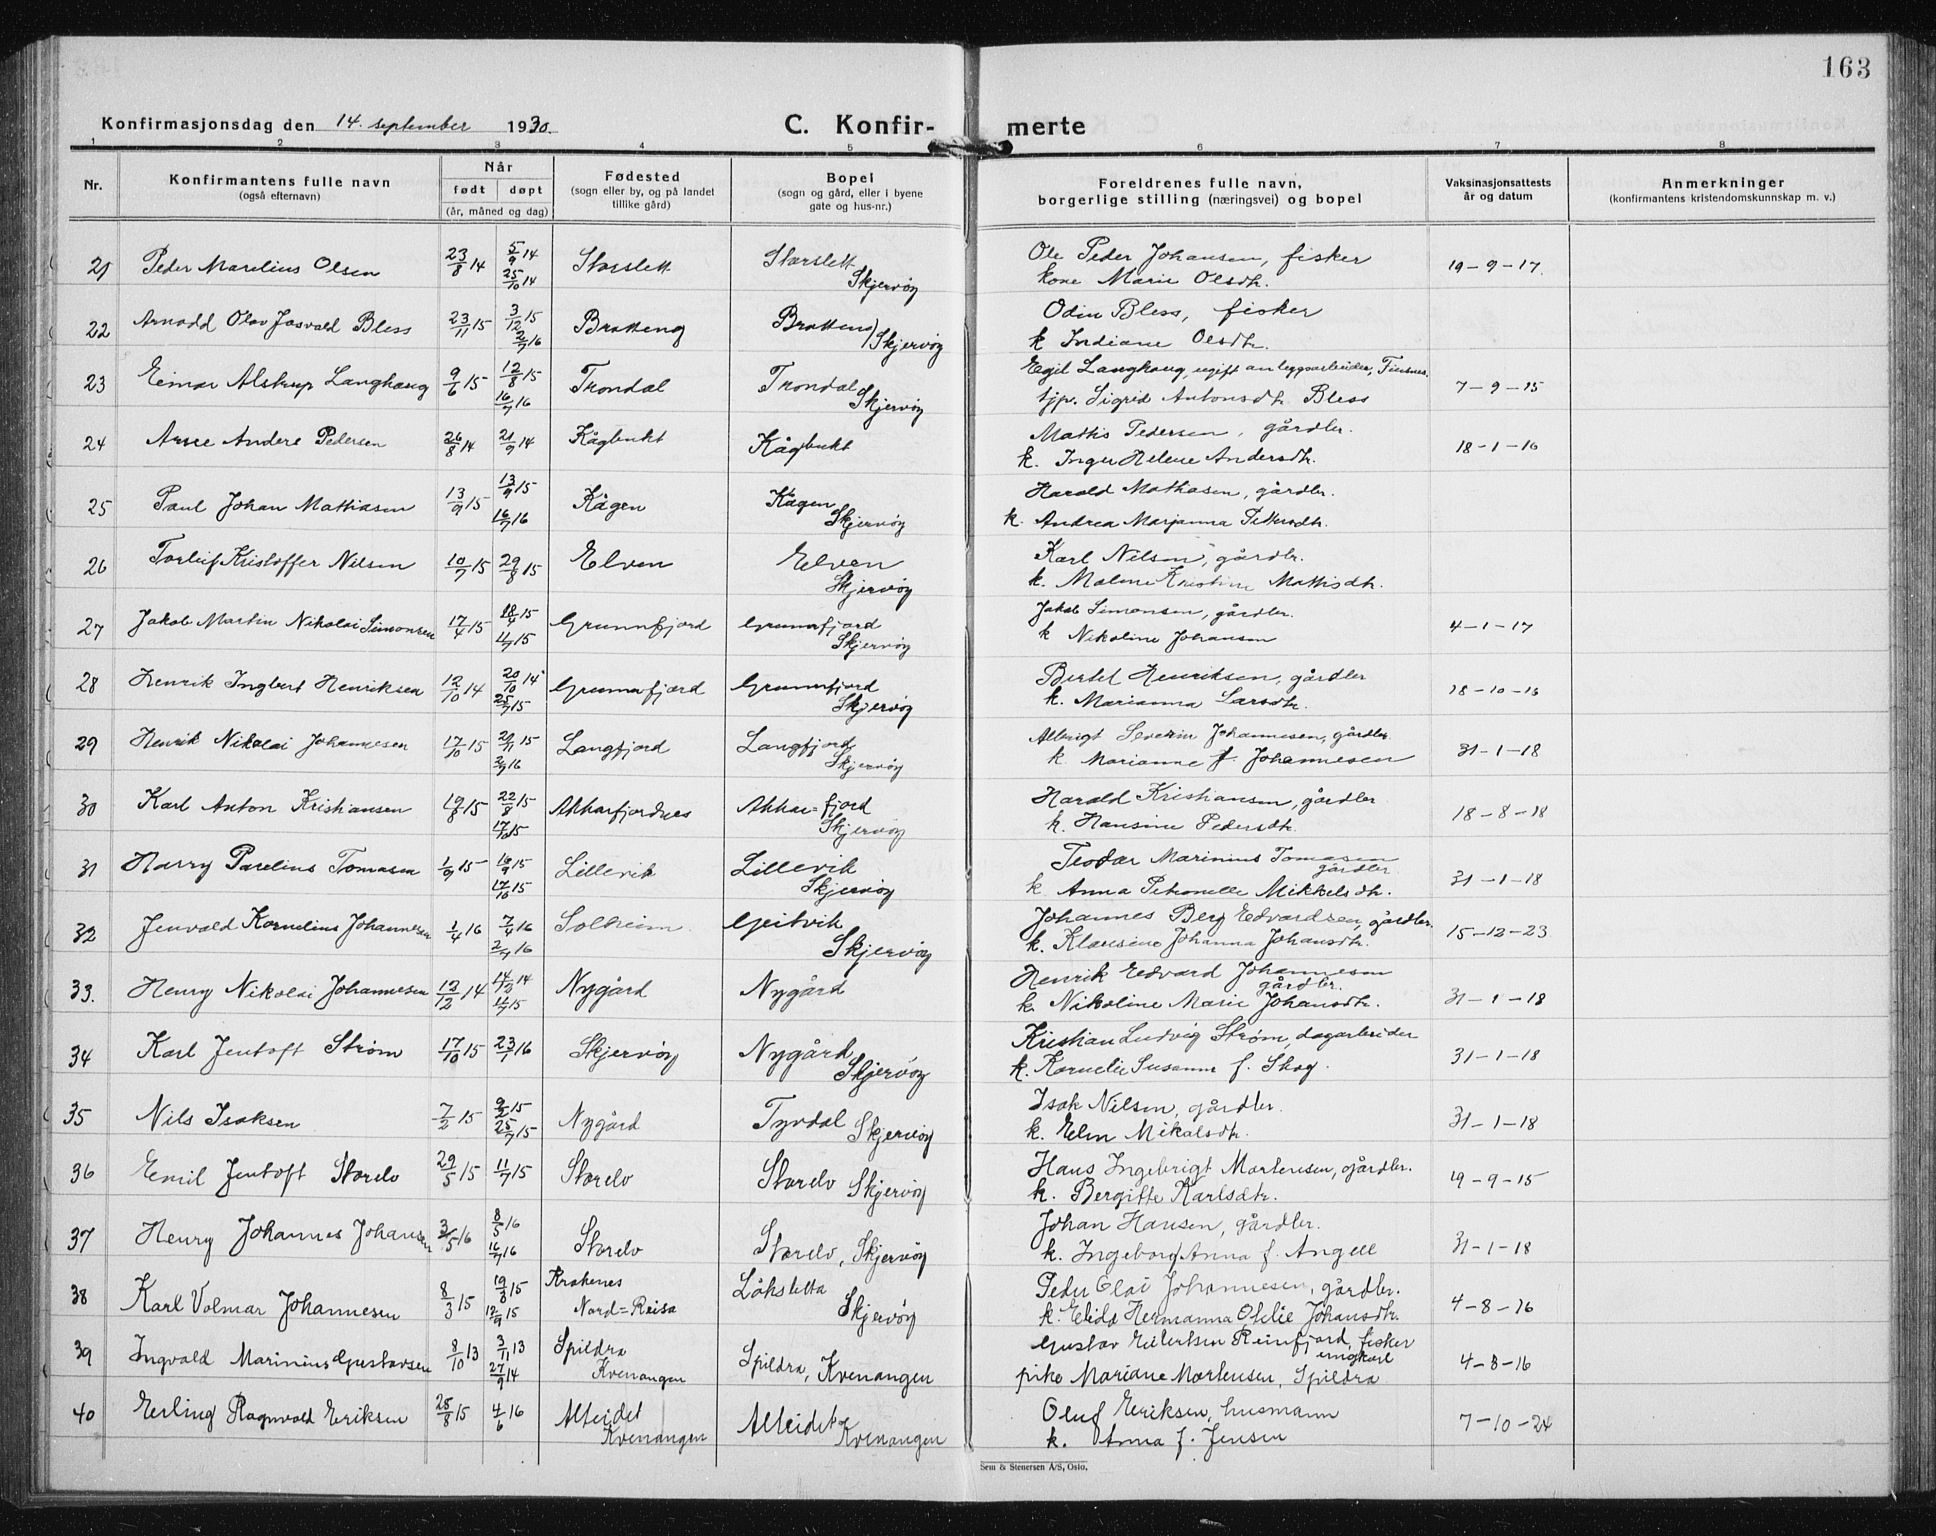 163
Konfirmasjonsdag den 14. september 1930.
C. Konfir-
merte
1 2 3 4 5 6 7 8
Nr. Konfirmantens fulle navn (også efternavn) Når født døpt (år, måned og dag) Fødested (sogn eller by, og på landet tillike gård) Bopel (sogn og gård, eller i byene gate og hus-nr.) Foreldrenes fulle navn, borgerlige stilling (næringsvei) og bopel Vaksinasjonsattests år og datum Anmerkninger (konfirmantens kristendomskunnskap m. v.)
21 Peder Marelius Olsen 23/8 14 5/9 14 25/10 14 Storslett Storslett Skjervøy Ole Peder Johansen, fisker kone Marie Olsdtr. 19-9-17.
22 Arnodd Olav Josvald Bless 23/11 15 3/12 15 2/7 16 Bratteng Bratteng Skjervøy Odin Bless, fisker k Indiane Olsdtr.
23 Einar Alstrup Langhaug 9/6 15 12/8 15 16/7 16 Trondal Trondal Skjervøy Egil Langhaug, ugift anleggsarbeider, Finsnes. tjp. Sigrid Antonsdtr Bless 7-9-15
24 Arne Andere Pedersen 26/8 14 21/9 14 Kågbukt Kågbukt Mathis Pedersen, gårdbr. k. Inger Helene Andersdtr. 18-1-16
25 Paul Johan Mathiasen 13/9 15 13/9 15 16/7 16 Kågen Kågen Skjervøy Harald Mathasen, gårdbr. k. Andrea Marjanna Pettersdtr.
26 Torleif Kristoffer Nilsen 10/7 15 29/8 15 Elven Elven Skjervøy Karl Nilsen, gårdbr. k. Malene Kristine Mathisdtr.
27 Jakob Martin Nikolai Simonsen 17/4 15 18/4 15 11/7 15 Grunnfjord Grunnfjord Skjervøy Jakob Simonsen, gårdbr. k Nikoline Johansen 4-1-17
28 Henrik Ingbert Henriksen 12/10 14 20/10 14 25/7 15 Grunnfjord Grunnfjord Skjervøy Bertel Henriksen, gårdbr k. Marianna Larsdtr. 18-10-16
29 Henrik Nikolai Johannesen 17/10 15 21/11 15 2/9 16 Langfjord Langfjord Skjervøy Albrigt Severin Johannesen, gårdbr k. Marianne f. Johannesen 31-1-18
30 Karl Anton Kristiansen 19/8 15 22/8 15 17/10 15 Akkarfjordnes Akkar=fjord Skjervøy Harald Kristiansen, gårdbr k. Hansine Pedersdtr. 18-8-18
31 Harry Parelius Tomasen 1/9 15 16/9 15 17/10 15 Lillevik Lillevik Skjervøy Teodor Marinius Tomasen gårdbr k Anna Petronelle Mikkelsdtr. 31-1-18
32 Jenvald Kornelius Johannesen 1/4 16 7/4 16 2/7 16 Solheim Geitvik Skjervøy Johannes Berg Edvardsen, gårdbr. k. Klausine Johanna Johansdtr. 15-12-23
33. Henry Nikolai Johannesen 12/12 14 14/12 14 11/7 15 Nygård Nygård Henrik Edvard Johannesen gårdbr. k. Nikoline Marie Johansdtr. 31-1-18
34 Karl Jentoft Strøm 17/10 15 23/7 16 Skjervøy Nygård Skjervøy Kristian Ludvig Strøm, dagarbeider k. Kornelie Susanne f. Skog. 31-1-18
35 Nils Isaksen 7/2 15 9/2 15 25/7 15 Nygård Tyvdal Skjervøy Isak Nilsen, gårdbr. k. Elen Mikalsdtr. 31-1-18
36 Emil Jentoft Storelv 29/5 15 11/7 15 Storelv Storelv Skjervøy Hans Ingebrigt Mortensen, gårdbr. k. Bergitte Karlsdtr. 19-9-15
37 Henry Johannes Johansen 3/5 16 8/5 16 16/7 16 Storelv Storelv, Skjervøy Johan Hansen, gårdbr. k. Ingeborg Anna f. Angell 31-1-18
38 Karl Volmar Johannesen 8/3 15 19/8 15 12/9 15 Krakenes Nord=Reisa Løksletta Skjervøy Peder Olai Johannesen, gårdbr. k. Elida Hermanna Otelie Johansdtr. 4-8-16
39 Ingvald Marinius Gustavsen 8/10 13 3/11 13 27/9 14 Spildra Kvenangen Spildra, Kvenangen Gustav Eilertsen Reinfjord, fisker ungkarl pike Mariane Mortensen, Spildra 4-8-16
40 Erling Ragnvald Eriksen 25/8 15 4/6 16 Alteidet Kvenangen Alteidet Kvenangen Oluf Eriksen, husmann k. Anna f. Jensen 7-10-24
Sem & Stenersen A/S, Oslo.